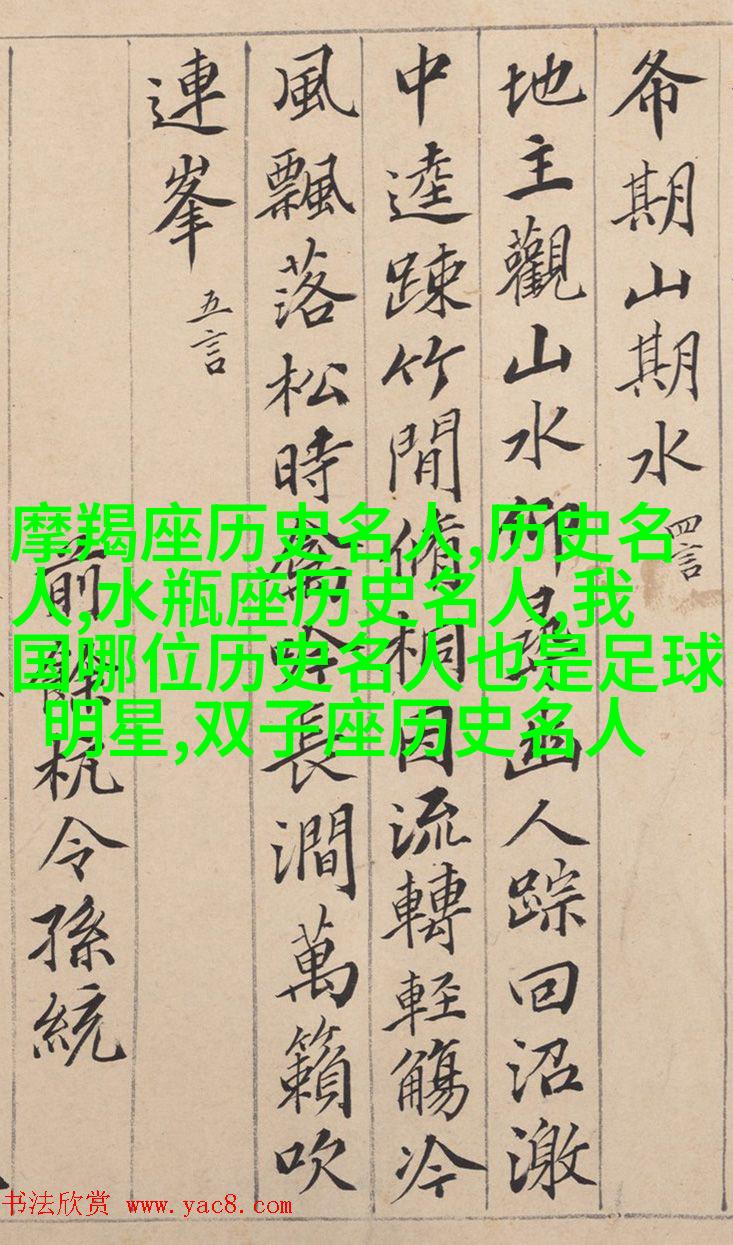 希期山期水 四言
地主觀山水仰尋幽人踪回沼激
中逵踈竹間脩桐因流轉輕觴冷
風飄落松時禽吟長澗萬籟吹
連峯 五言
前餘杭令孫統
摩羯座历史名人,历史名
人,水瓶座历史名人,我
国哪位历史名人也是足球
明星,双子座历史名人
书法欣赏 www.yac8.com